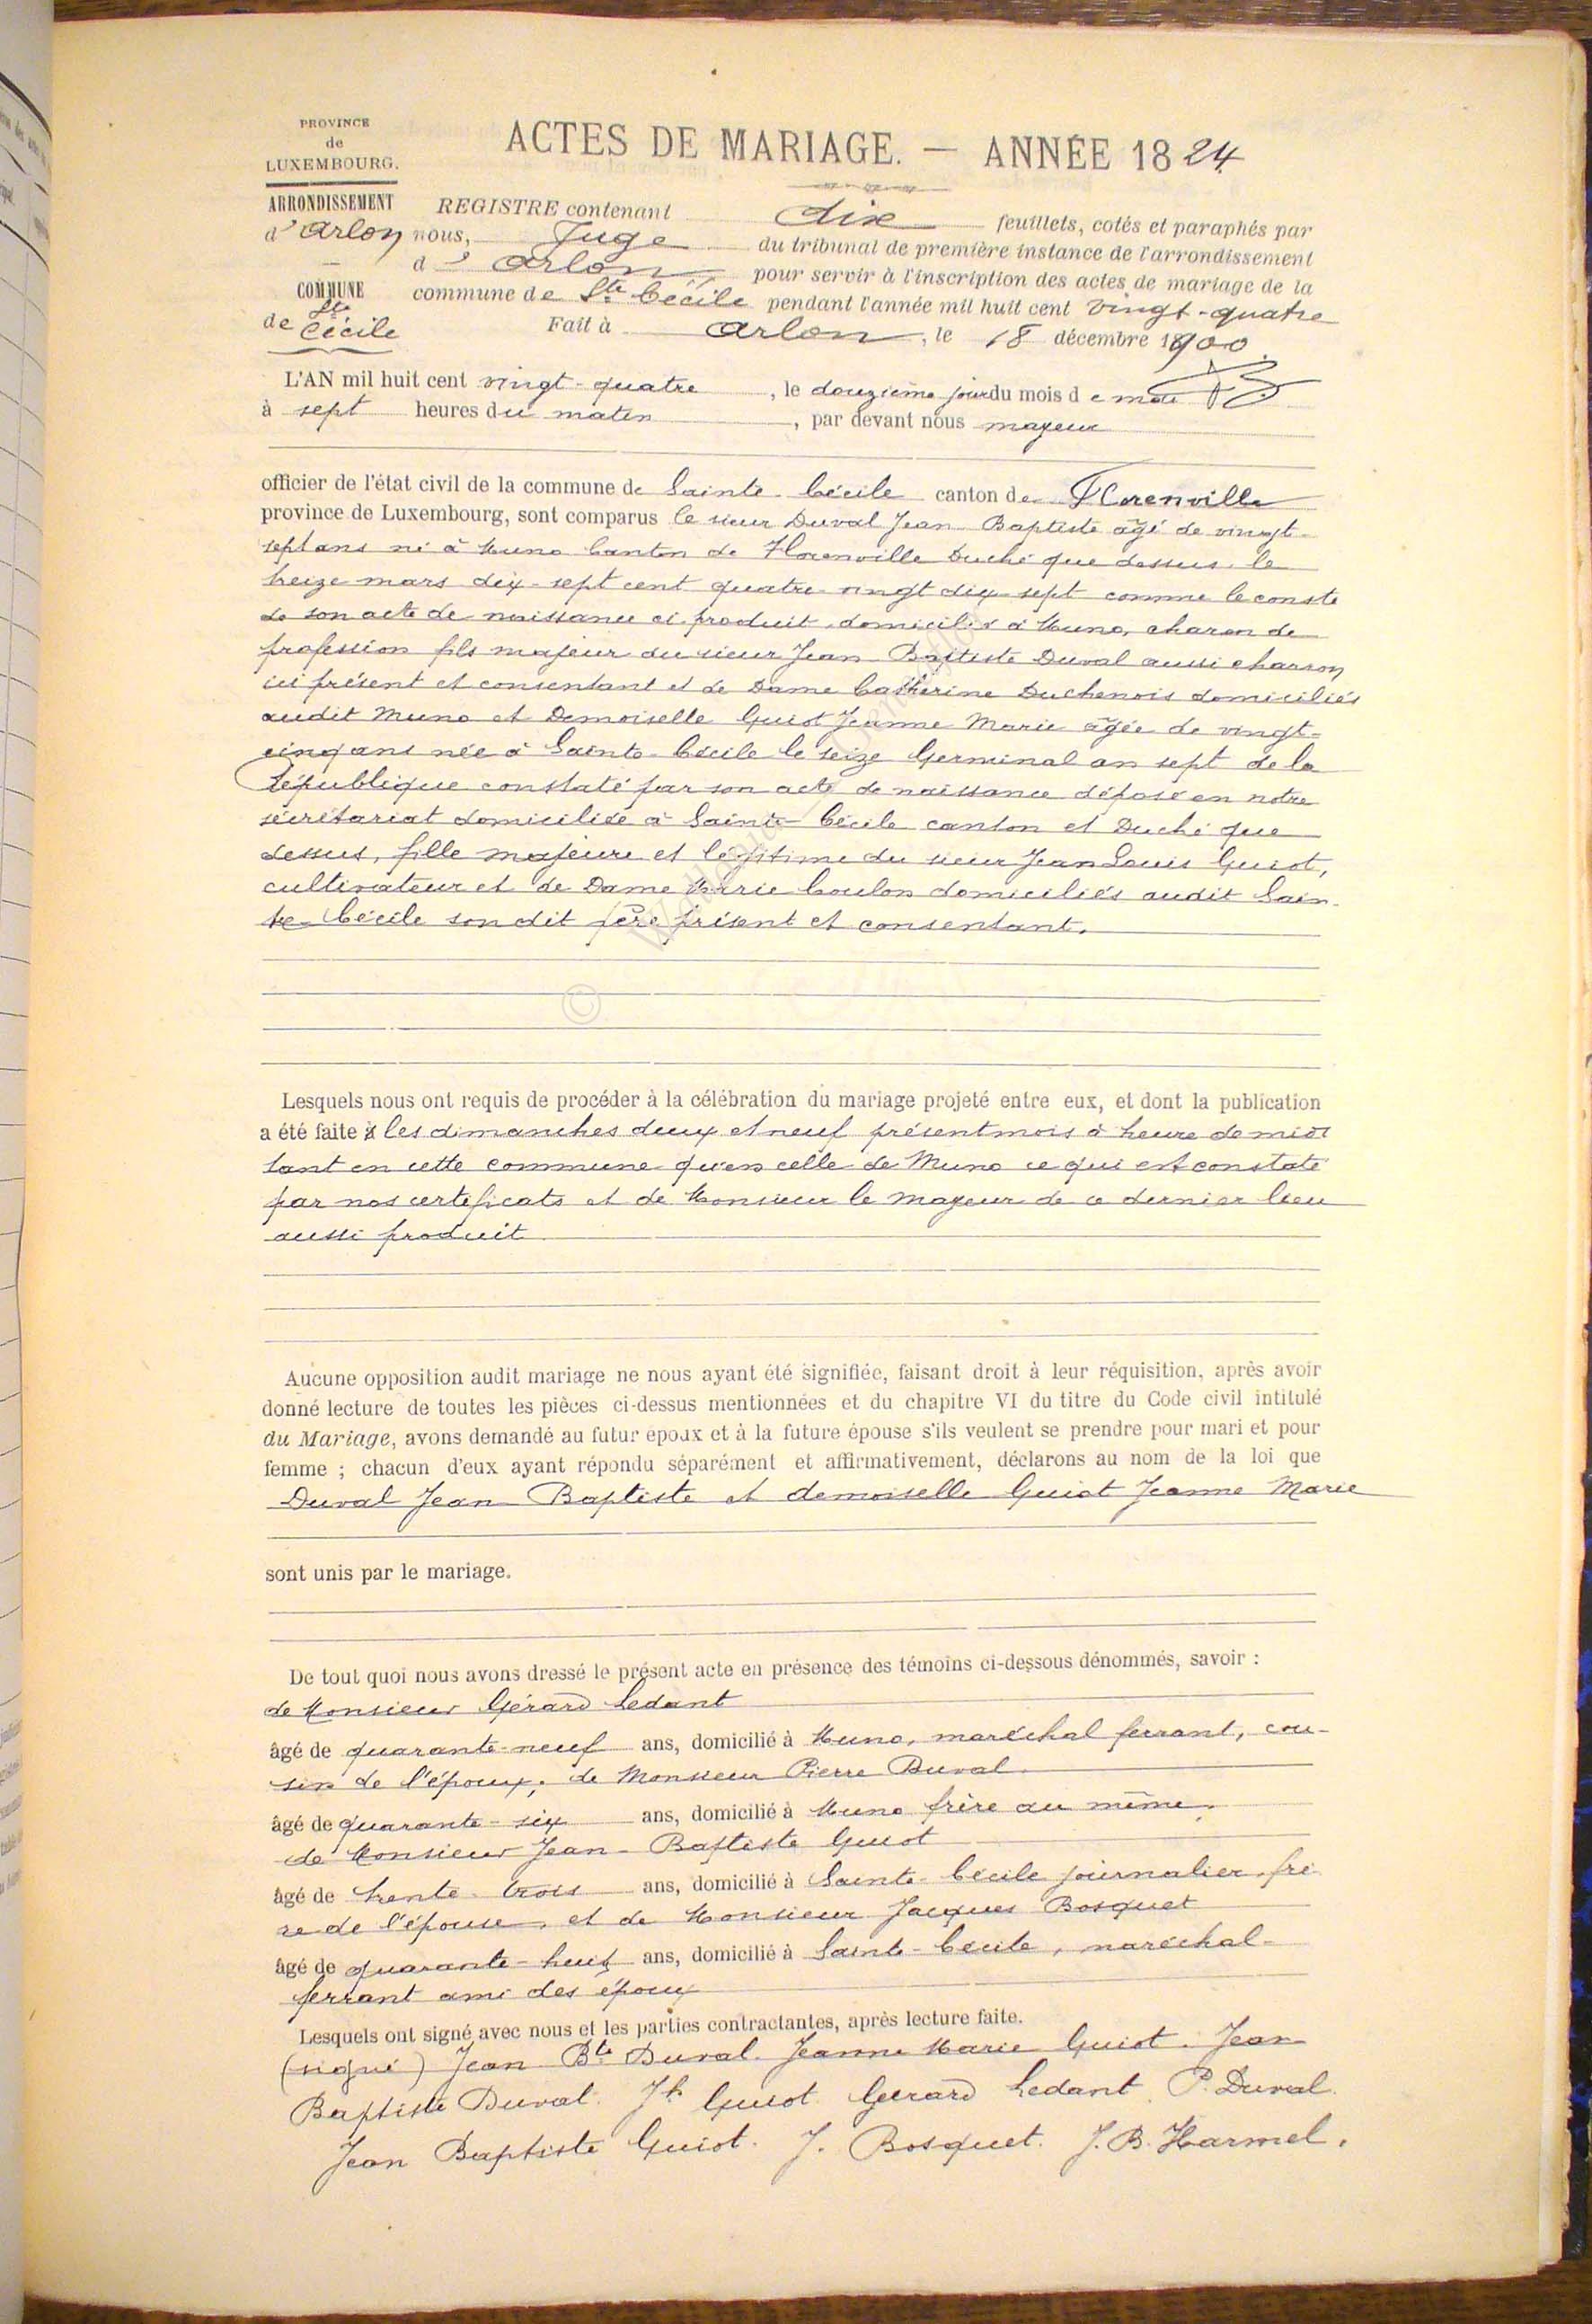 PROVINCE
de
LUXEMBOURG.
ACTES DE MARIAGE. — ANNÉE 1824
ARRONDISSEMENT
d'Arlon
COMMUNE
de Ste Cécile
REGISTRE contenant dix feuillets, cotés et paraphés par
nous, Juge du tribunal de première instance de l'arrondissement
d'Arlon pour servir à l'inscription des actes de mariage de la
commune de Ste Cécile pendant l'année mil huit cent vingt-quatre
Fait à Arlon, le 18 décembre 1900.
L'AN mil huit cent vingt-quatre, le douzième jour du mois de mai
à sept heures du matin, par devant nous mayeur
officier de l'état civil de la commune de Sainte-Cécile canton de Florenville
province de Luxembourg, sont comparus le sieur Duval Jean Baptiste âgé de vingt-
sept ans né à Muno Canton de Florenville Duché que dessus le
treize mars dix-sept cent quatre-vingt dix-sept comme le conste
de son acte de naissance ci produit, domicilié à Muno, charon de
profession fils majeur du sieur Jean Baptiste Duval aussi charron
ici présent et consentant et de Dame Catherine Duchenois domiciliés
audit Muno et Demoiselle Guiot Jeanne Marie âgée de vingt-
cinq ans née à Sainte-Cécile le seize Germinal an sept de la
République constaté par son acte de naissance déposé en notre
sécrétariat domiciliée à Sainte-Cécile canton et Duché que
dessus, fille majeure et légitime du sieur Jean Louis Guiot,
cultivateur et de Dame Marie Coulon domiciliés audit Sain-
te-Cécile son dit père présent et consentant.
©
Lesquels nous ont requis de procéder à la célébration du mariage projeté entre eux, et dont la publication
a été faite à les dimanches deux et neuf présent mois à heure de midi
tant en cette commune qu'en celle de Muno ce qui est constaté
par nos certificats et de Monsieur le mayeur de ce dernier lieu
aussi produit
Aucune opposition audit mariage ne nous ayant été signifiée, faisant droit à leur réquisition, après avoir
donné lecture de toutes les pièces ci-dessus mentionnées et du chapitre VI du titre du Code civil intitulé
du Mariage, avons demandé au futur époux et à la future épouse s'ils veulent se prendre pour mari et pour
femme ; chacun d'eux ayant répondu séparément et affirmativement, déclarons au nom de la loi que
Duval Jean Baptiste et demoiselle Guiot Jeanne Marie
sont unis par le mariage.
De tout quoi nous avons dressé le présent acte en présence des témoins ci-dessous dénommés, savoir :
de Monsieur Gérard Ledant
âgé de quarante-neuf ans, domicilié à Muno, maréchal ferrant, cou-
sin de l'époux, de Monsieur Pierre Duval
âgé de quarante-six ans, domicilié à Muno frère au même.
de Monsieur Jean-Baptiste Guiot
âgé de trente-trois ans, domicilié à Sainte-Cécile journalier, frè
re de l'épouse, et de Monsieur Jacques Bosquet
âgé de quarante-huit ans, domicilié à Sainte-Cécile, maréchal-
ferrant ami des époux
Lesquels ont signé avec nous et les parties contractantes, après lecture faite.
(signé) Jean Bte Duval. Jeanne Marie Guiot. Jean
Baptiste Duval. Guiot Gérard Ledant. P. Duval.
Jean Baptiste Guiot. J. Bosquet. J. B. Harmel.